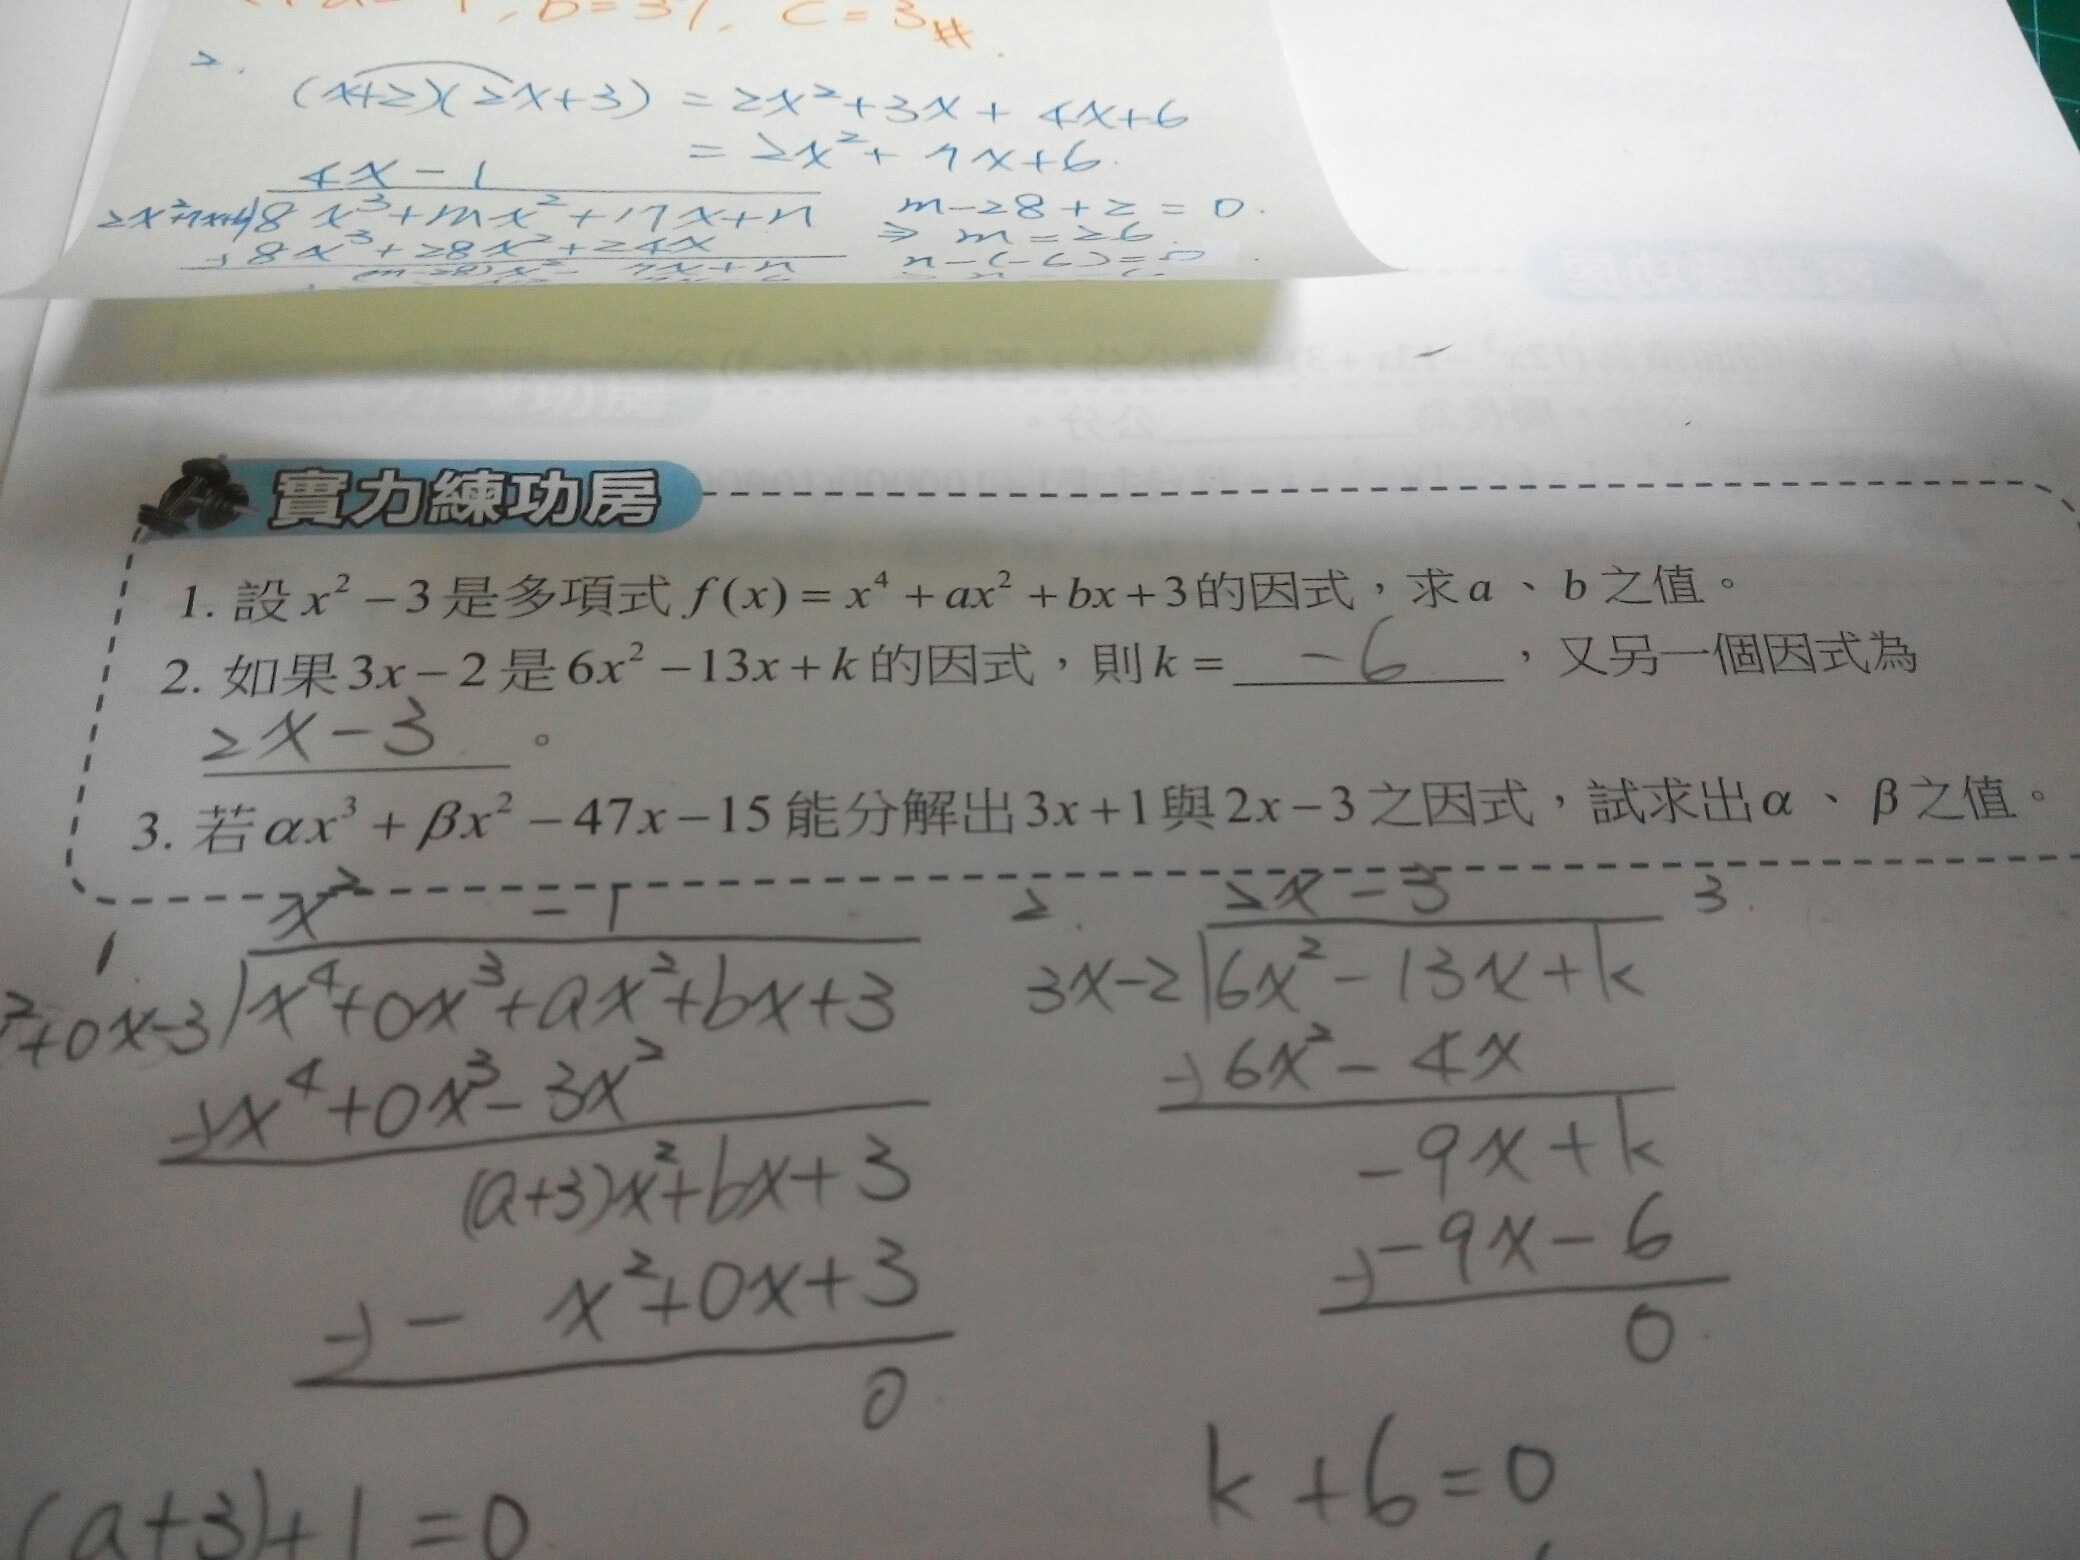 b=37, C=3#
2.
(x+2)(2x+3) = 2x²+3x+4x+6
= 2x²+7x+6.
4x-1
2x²+7x+6)8x³+mx²+17x+n
-)8x³+28x²+24x
(m-28)x²-7x+n
m-28+2=0.
⇒ m=26
n-(-6)=0
實力練功房
1. 設x²-3是多項式f(x)=x⁴+ax²+bx+3的因式，求a、b之值。
2. 如果3x-2是6x²-13x+k的因式，則k= -6 ，又另一個因式為
2x-3 。
3. 若αx³+βx²-47x-15能分解出3x+1與2x-3之因式，試求出α、β之值。
1.
x² -1
²+0x-3)x⁴+0x³+ax²+bx+3
-)x⁴+0x³-3x²
(a+3)x²+bx+3
-)- x²+0x+3
0
(a+3)+1=0
2.
2x-3
3x-2)6x²-13x+k
-)6x²-4x
-9x+k
-)-9x-6
0
k+6=0
3.